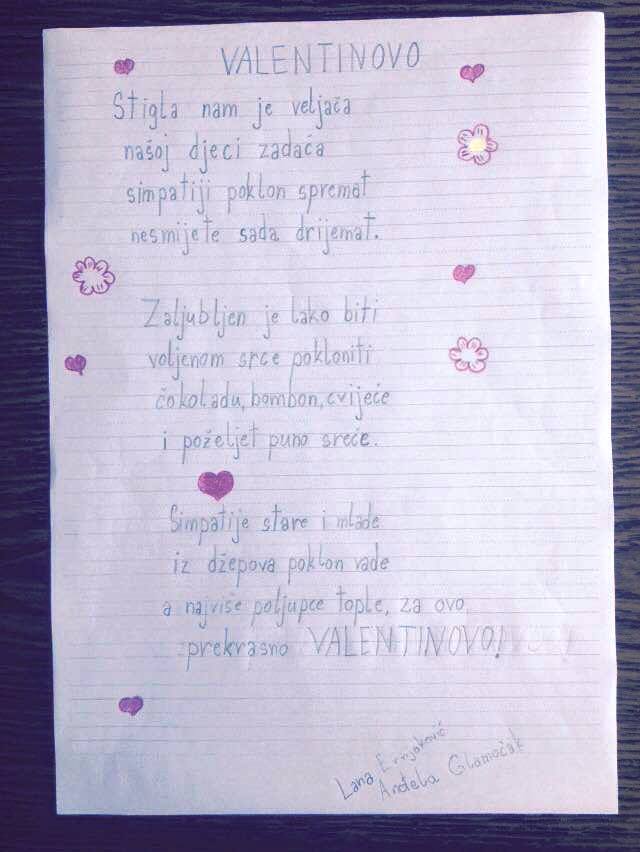 VALENTINOVO
Stigla nam je veljača
našoj djeci zadaća
simpatiji poklon spremat
nesmijete sada drijemat.
Zaljubljen je lako biti
voljenom srce pokloniti
čokoladu, bombon, cvijeće
i poželjet puno sreće.
Simpatije stare i mlade
iz džepova poklon vade
a najviše poljupce tople, za ovo
prekrasno VALENTINOVO!
Lana
Anđela Glamočak